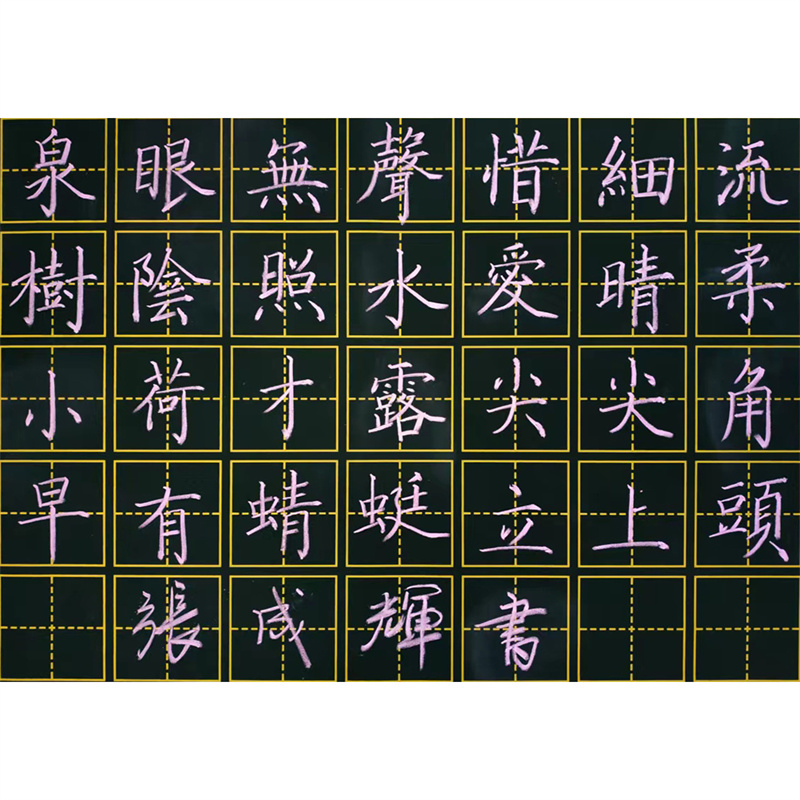 泉眼無聲惜細流
樹陰照水愛晴柔
小荷才露尖尖角
早有蜻蜓立上頭
張成輝書